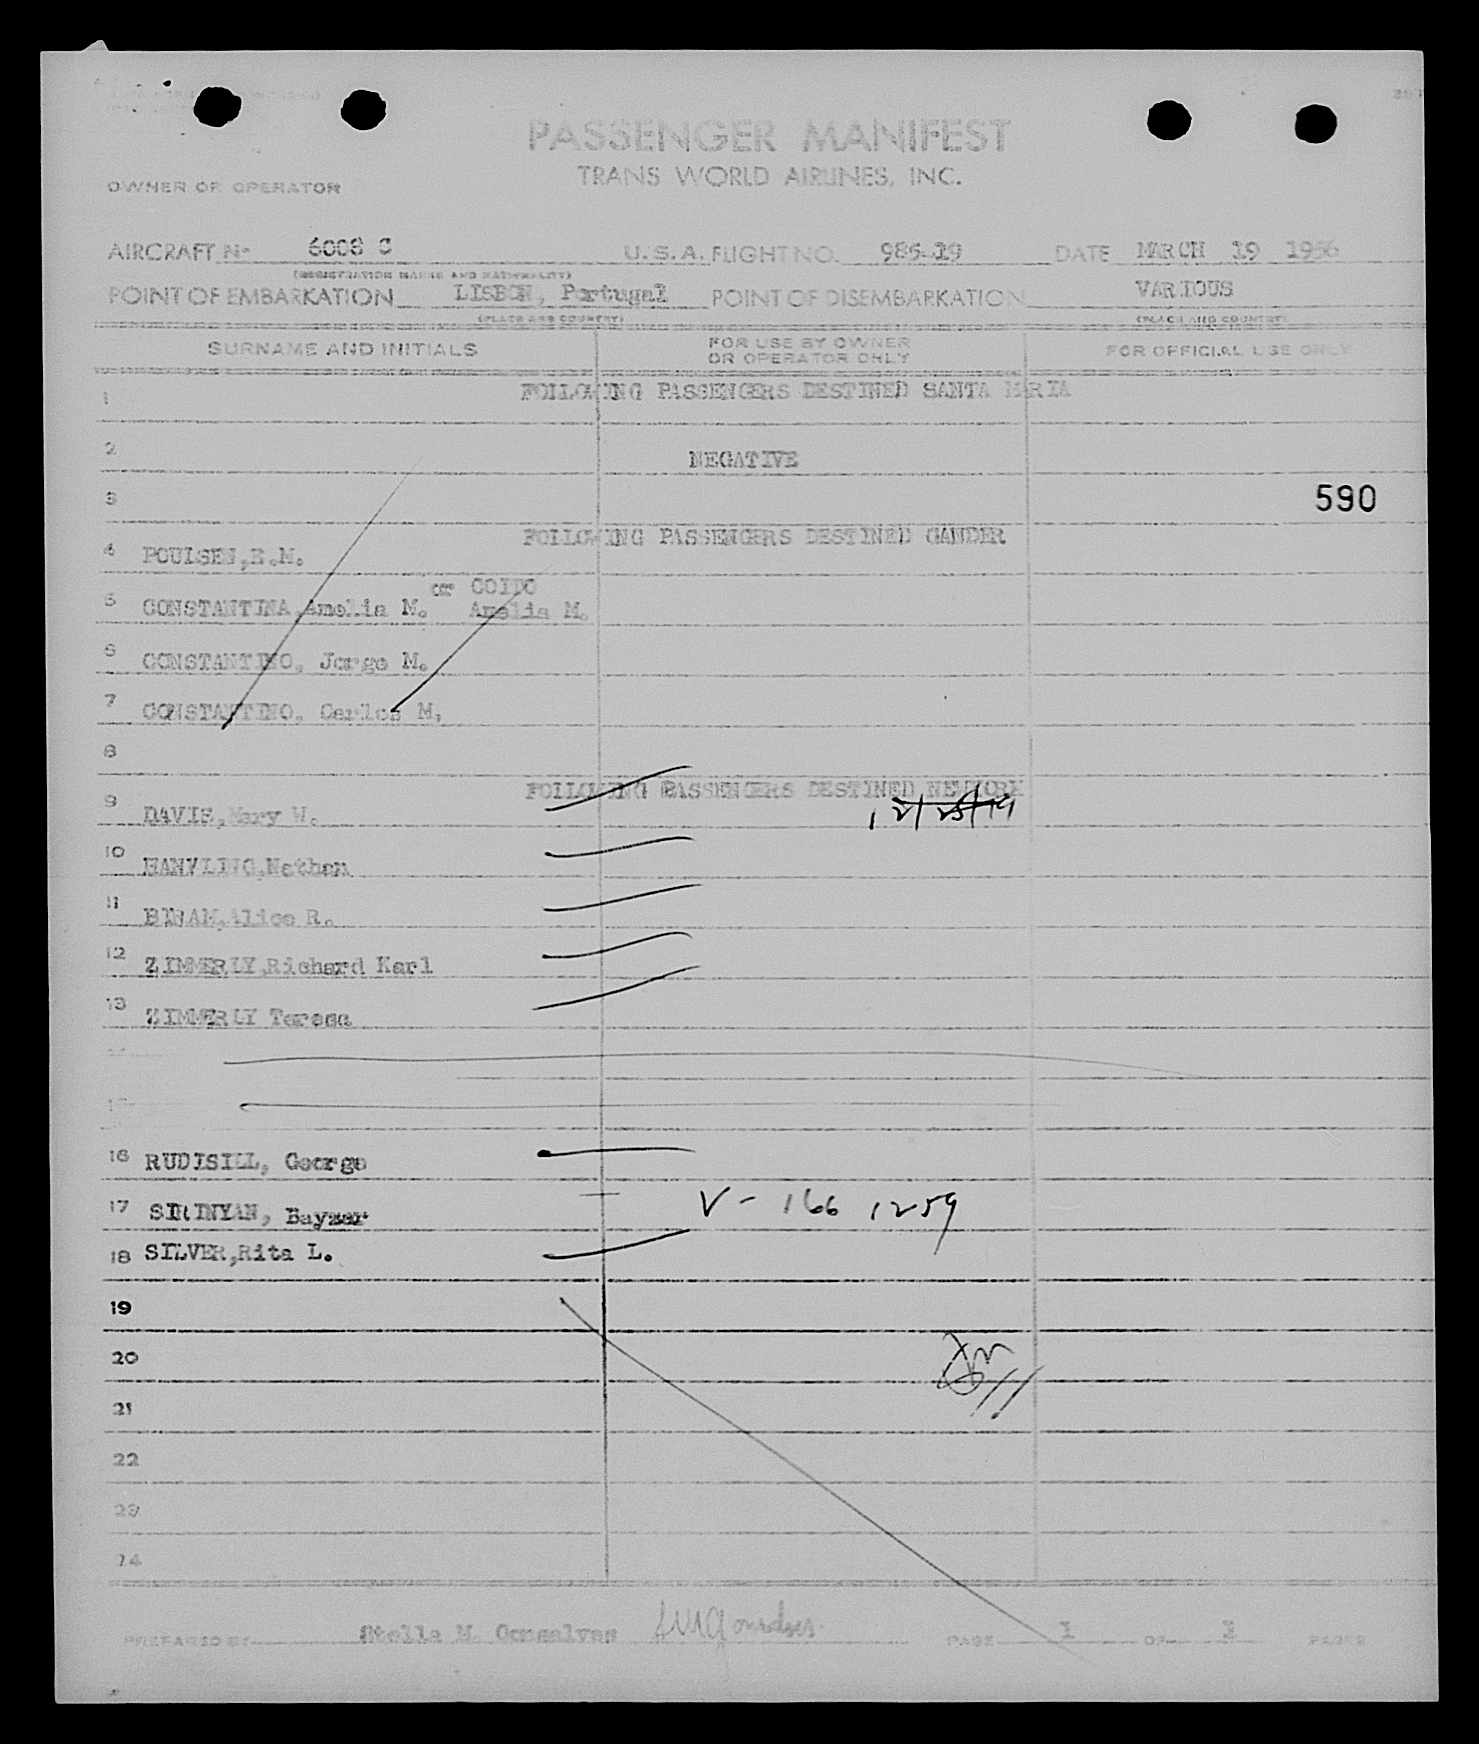 PASSENGER MANIFEST
TRANS WORLD AIRLINES, INC.
OWNER OR OPERATOR
AIRCRAFT No 6008 C U.S.A. FLIGHT NO. 986-19 DATE MARCH 19 1956
(REGISTRATION MARKS AND NATIONALITY)
POINT OF EMBARKATION LISBON, Portugal POINT OF DISEMBARKATION VARIOUS
(PLACE AND COUNTRY) (PLACE AND COUNTRY)
SURNAME AND INITIALS FOR USE BY OWNER OR OPERATOR ONLY FOR OFFICIAL USE ONLY
1 FOLLOWING PASSENGERS DESTINED SANTA MARIA
2 NEGATIVE
3 590
FOLLOWING PASSENGERS DESTINED GANDER
4 POULSEN,E.M.
or COITO
5 CONSTANTINA,Amelia M. Amelia M.
6 CONSTANTINO, Jorge M.
7 CONSTANTINO, Carlos M,
8
FOLLOWING PASSENGERS DESTINED NEWYORK
9 DAVIS,Mary W.
10 Nathan
11 Alice R.
12 ZIMMERLY,Richard Karl
13 ZIMMERLY Teresa
16 RUDISILL, George
17 SIRINYAN, Bayzar V- 166 1259
18 SILVER,Rita L.
19
20
21
22
23
24
PREPARED BY Stella M. Gonsalves PAGE 1 OF PAGES